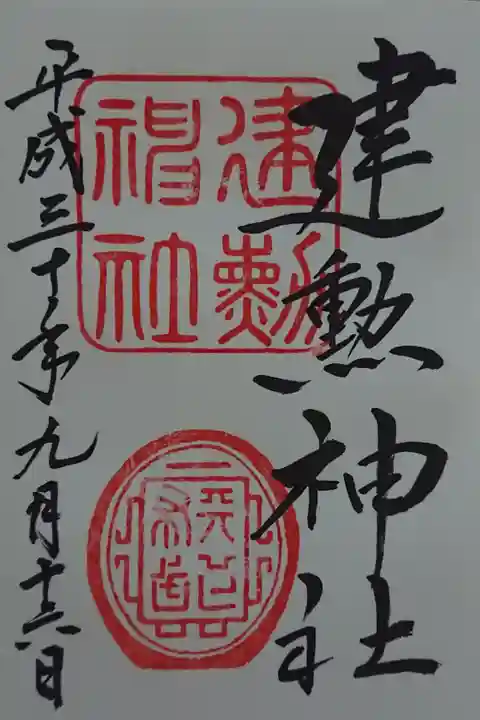 建勲神社
建勲
神社
平成三十年九月十六日